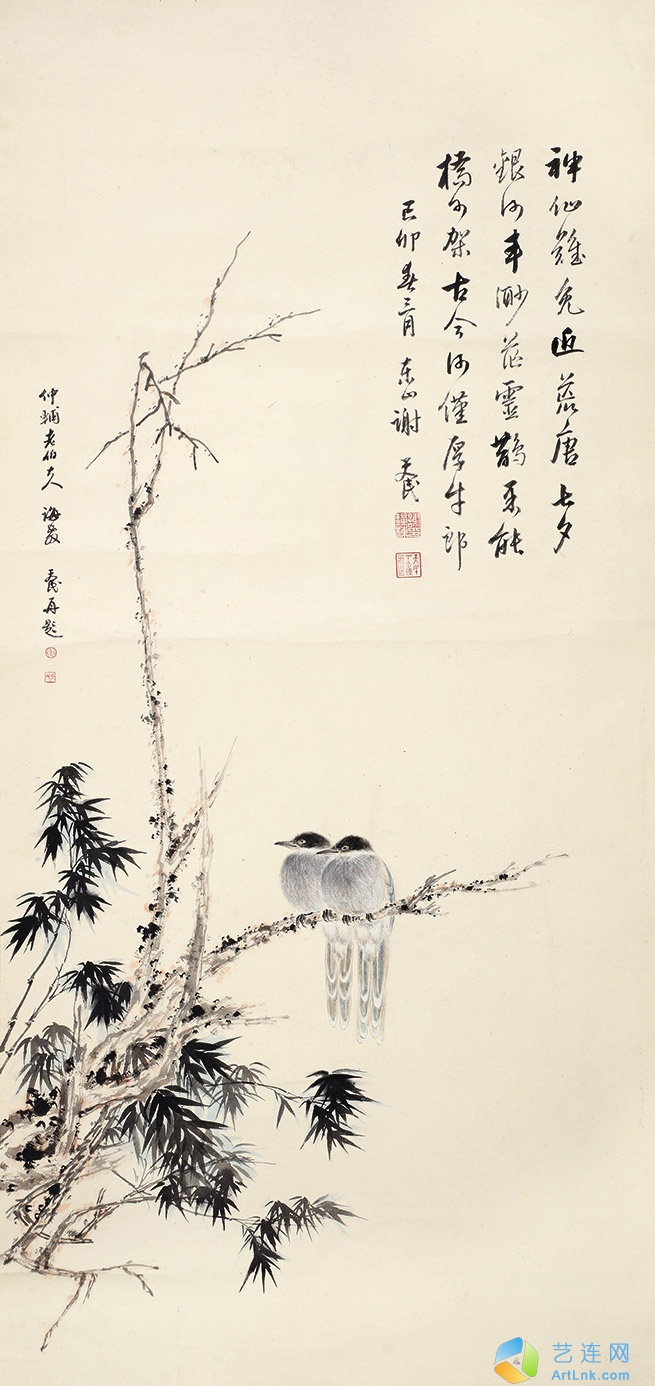 神仙難免近荒唐七夕
銀河事渺茫靈鵲果能
橋可架古今何僅厚牛郎
己卯春三月東山謝天民
仲輔老伯大人誨教
天民再題
艺连网
ArtLnk.com